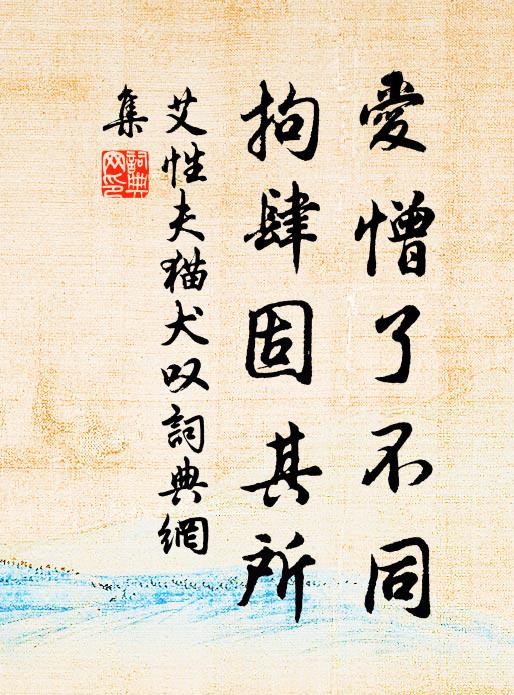 愛憎了不同
拘肆固其所
艾性夫猫犬叹詞典網
集
詞典
网印